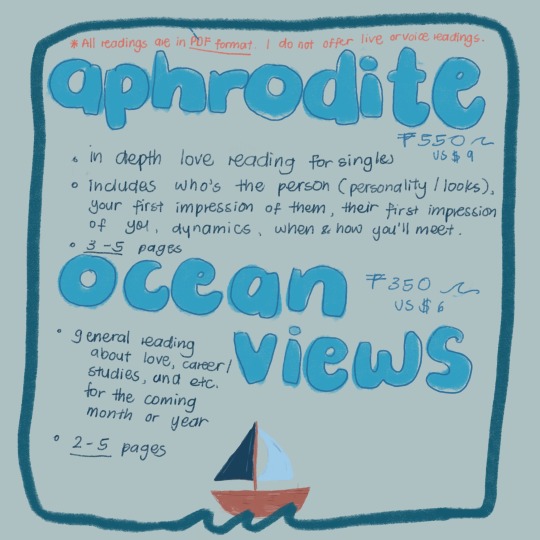 * All readings are in PDF format. I do not offer live or voice readings.
aphrodite
₱550
US $ 9
in depth love reading for singles
includes who's the person (personality / looks),
your first impression of them, their first impression
of you, dynamics, when & how you'll meet.
3-5 pages
ocean
₱350
US $ 6
views
general reading
about love, career/
studies, and etc.
for the coming
month or year
2-5 pages